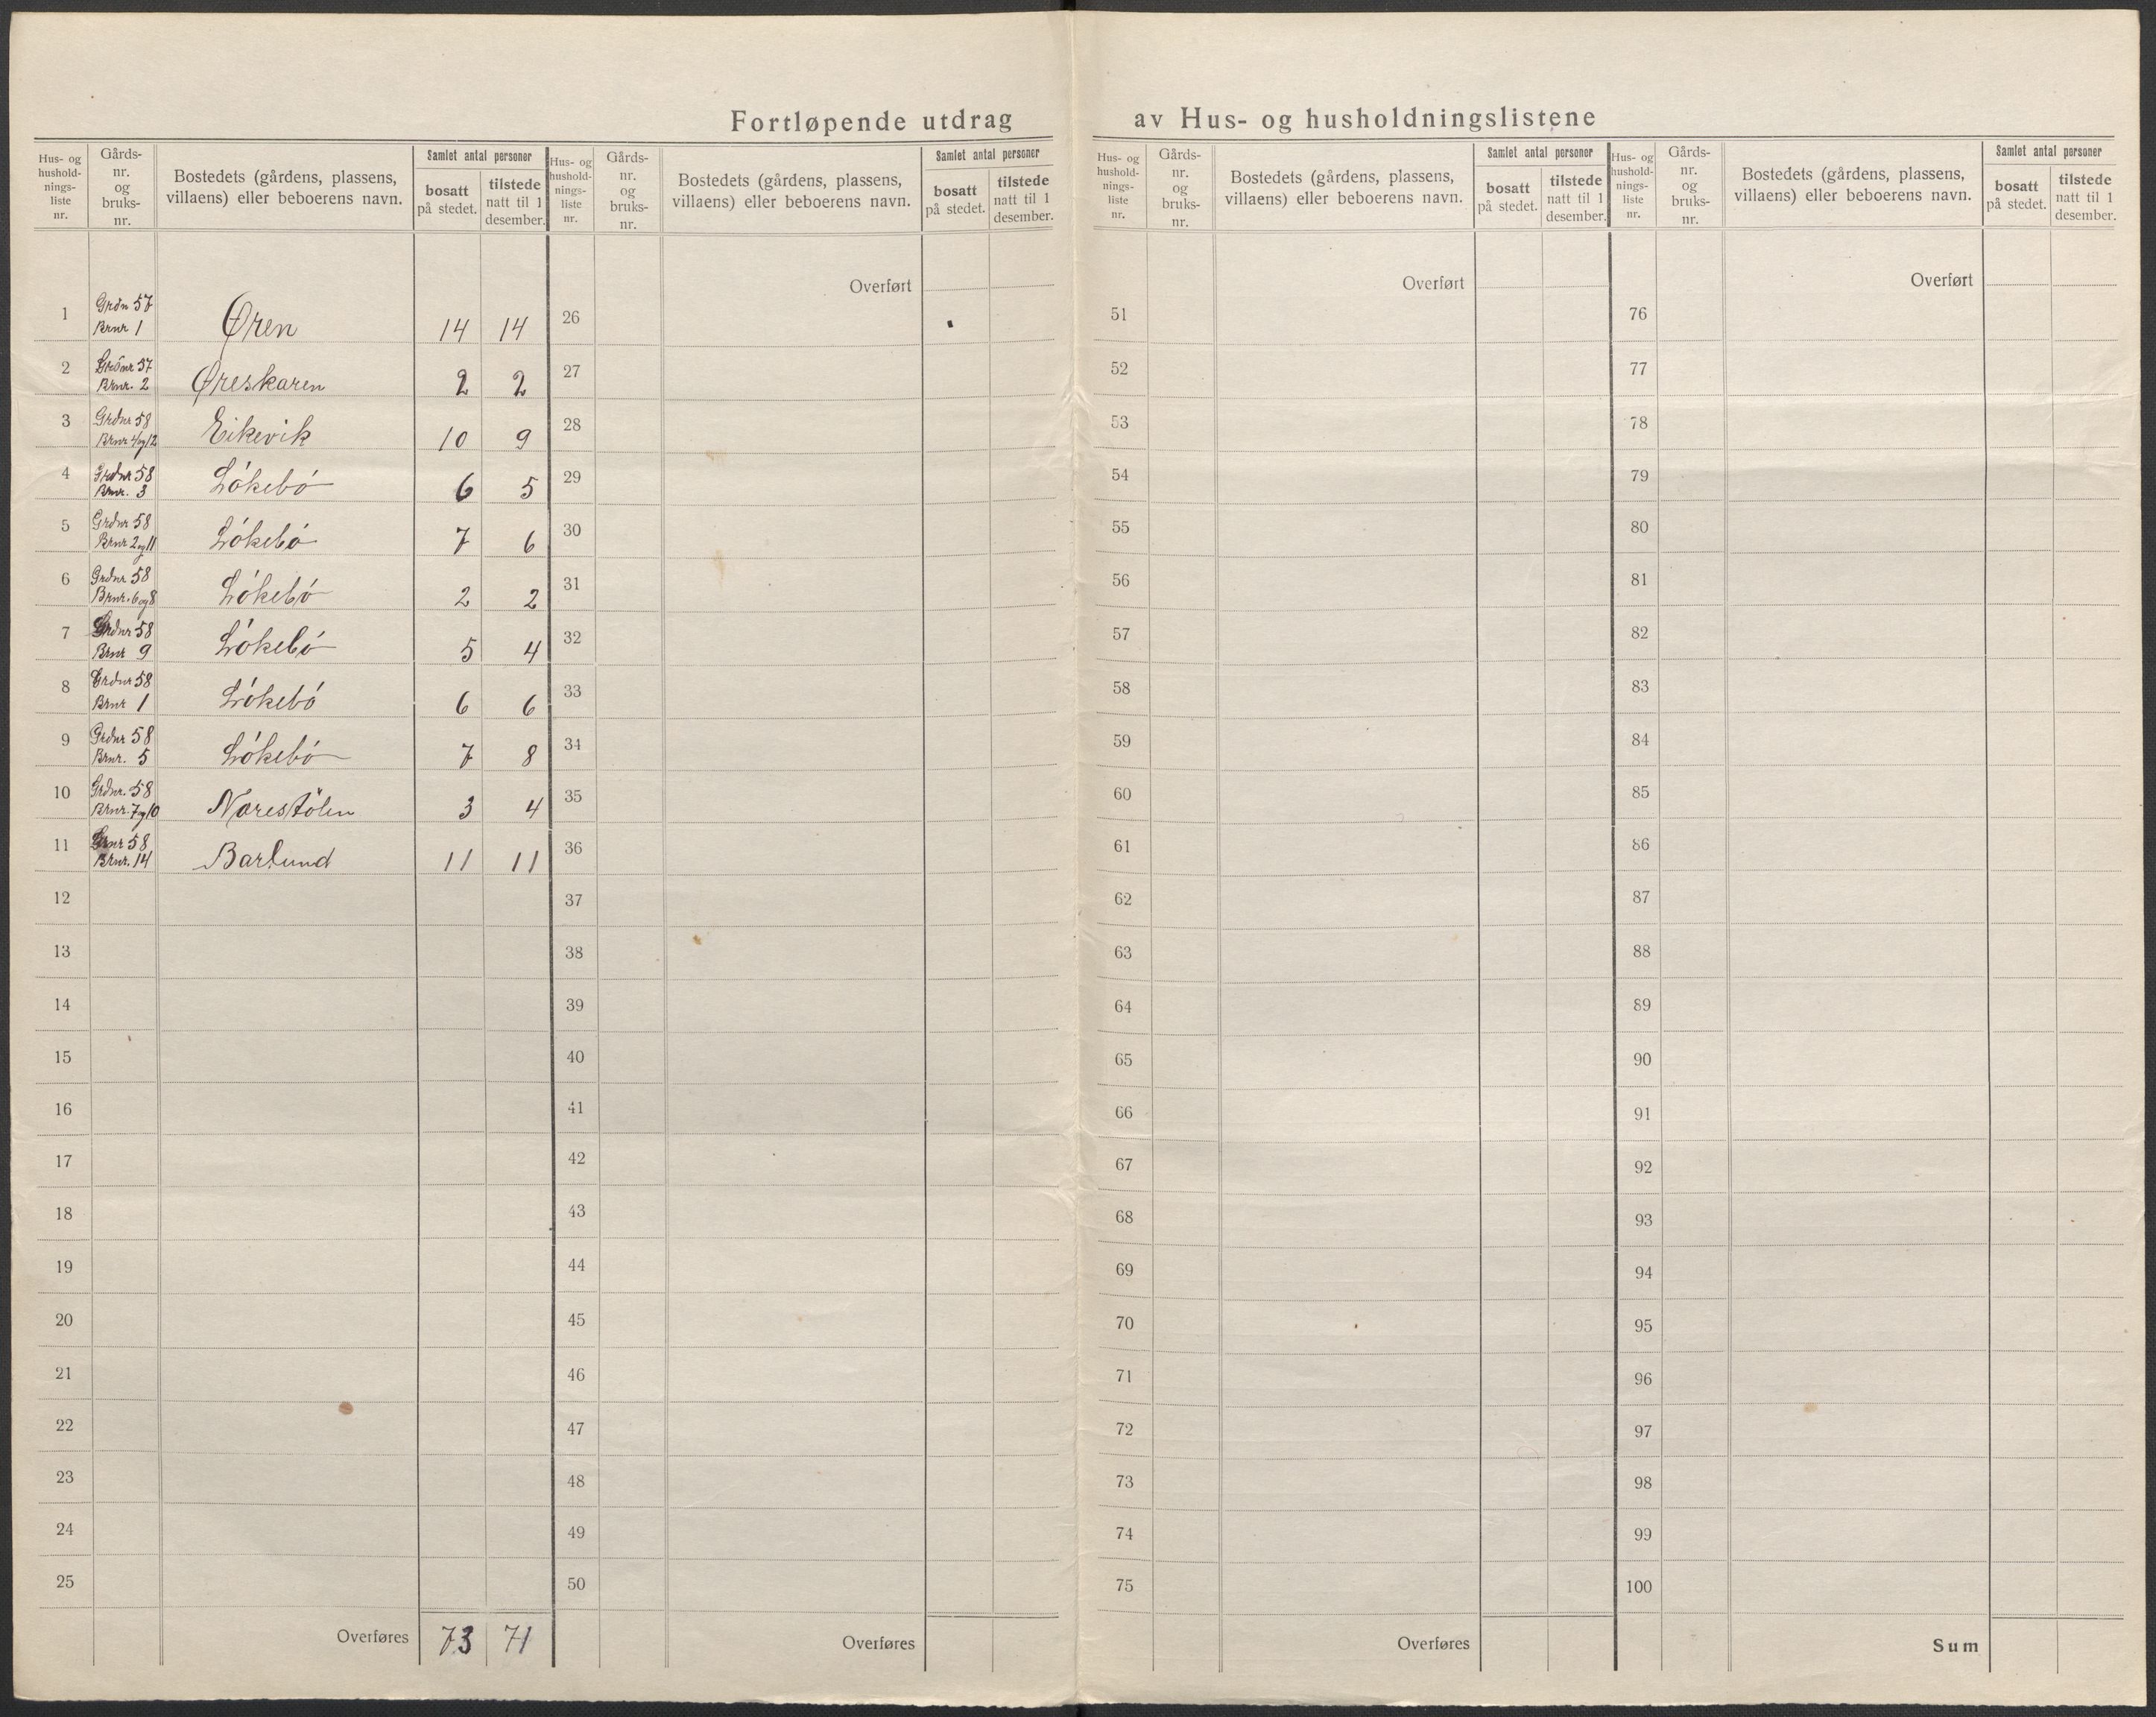 Fortløpende utdrag av Hus- og husholdningslistene
Hus- og hushold- nings- liste nr.
Gårds- nr. og bruks- nr.
Bostedets (gårdens, plassens, villaens) eller beboerens navn.
Samlet antal personer
bosatt på stedet.
tilstede natt til 1 desember.
Hus- og hushold- nings- liste nr.
Gårds- nr. og bruks- nr.
Bostedets (gårdens, plassens, villaens) eller beboerens navn.
Samlet antal personer
bosatt på stedet.
tilstede natt til 1 desember.
Hus- og hushold- nings- liste nr.
Gårds- nr. og bruks- nr.
Bostedets (gårdens, plassens, villaens) eller beboerens navn.
Samlet antal personer
bosatt på stedet.
tilstede natt til 1 desember.
Hus- og hushold- nings- liste nr.
Gårds- nr. og bruks- nr.
Bostedets (gårdens, plassens, villaens) eller beboerens navn.
Samlet antal personer
bosatt på stedet.
tilstede natt til 1 desember.
Overført Overført Overført
1 Grdn 57 Brnr 1 Øren 14 14 26 51 76
2 Grdnr 57 Brnr. 2 Øreskaren 2 2 27 52 77
3 Grdnr 58 Brnr 4 og 12 Eikevik 10 9 28 53 78
4 Grdnr 58 Brnr. 3 Lökebö 6 5 29 54 79
5 Grdnr 58 Brnr 2 og 11 Lökebö 7 6 30 55 80
6 Grdnr 58 Brnr. 6 og 8 Lökebö 2 2 31 56 81
7 Grdnr 58 Brnr 9 Lökebö 5 4 32 57 82
8 Grdnr 58 Brnr 1 Lökebö 6 6 33 58 83
9 Grdnr 58 Brnr. 5 Lökebö 7 8 34 59 84
10 Grdnr. 58 Brnr. 7 og 10 Norestölen 3 4 35 60 85
11 Grnr 58 Brnr. 14 Barlund 11 11 36 61 86
12 37 62 87
13 38 63 88
14 39 64 89
15 40 65 90
16 41 66 91
17 42 67 92
18 43 68 93
19 44 69 94
20 45 70 95
21 46 71 96
22 47 72 97
23 48 73 98
24 49 74 99
25 50 75 100
Overføres 73 71 Overføres Overføres Sum